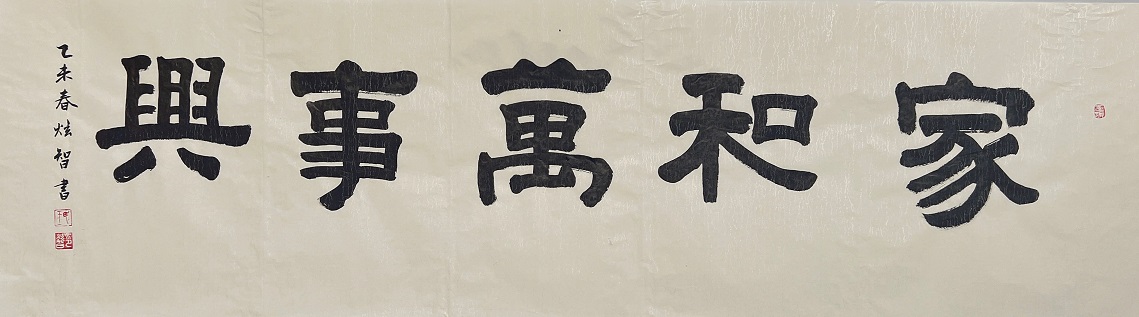 家和萬事興
乙未春炫智書